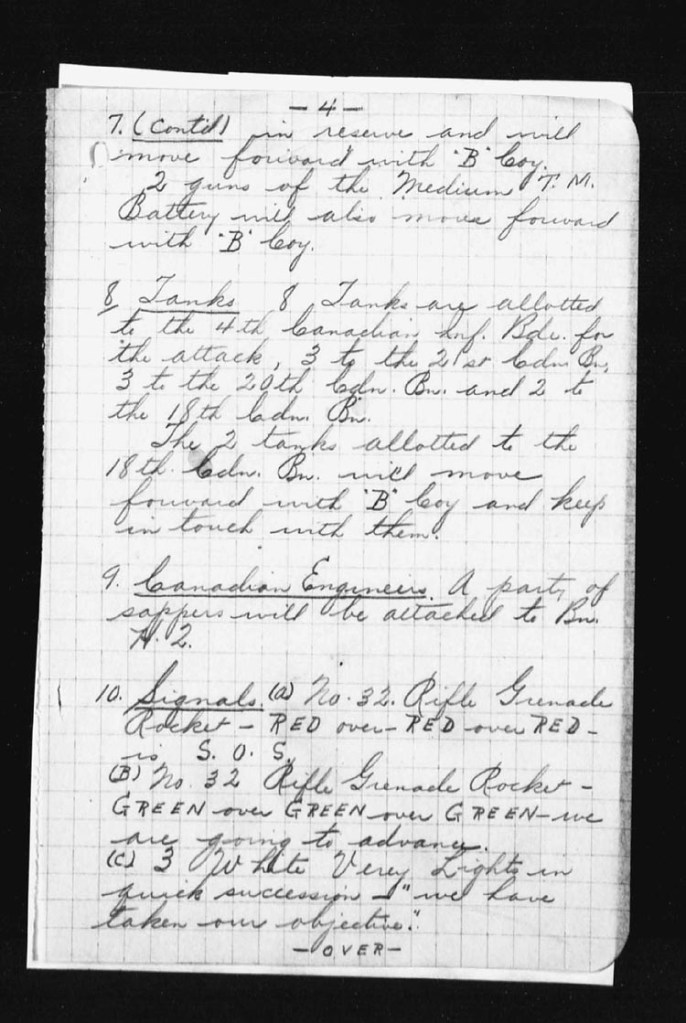 - 4 -
7. (Contd) in reserve and will
move forward with "B" Coy.
2 guns of the Medium T. M.
Battery will also move forward
with "B" Coy.
8 Tanks 8 Tanks are allotted
to the 4th Canadian Inf. Bde. for
the attack, 3 to the 21st Cdn. Bn,
3 to the 20th Cdn. Bn. and 2 to
the 18th Cdn. Bn.
The 2 tanks allotted to the
18th Cdn. Bn. will move
forward with "B" Coy and keep
in touch with them.
9. Canadian Engineers. A party of
sappers will be attached to Bn.
H.Q.
10. Signals. (a) No. 32. Rifle Grenade
Rocket - RED over - RED over RED -
is S. O. S.
(B) No. 32 Rifle Grenade Rocket -
GREEN over GREEN over GREEN - we
are going to advance.
(C) 3 White Verey Lights in
quick succession - "we have
taken our objective."
- OVER -